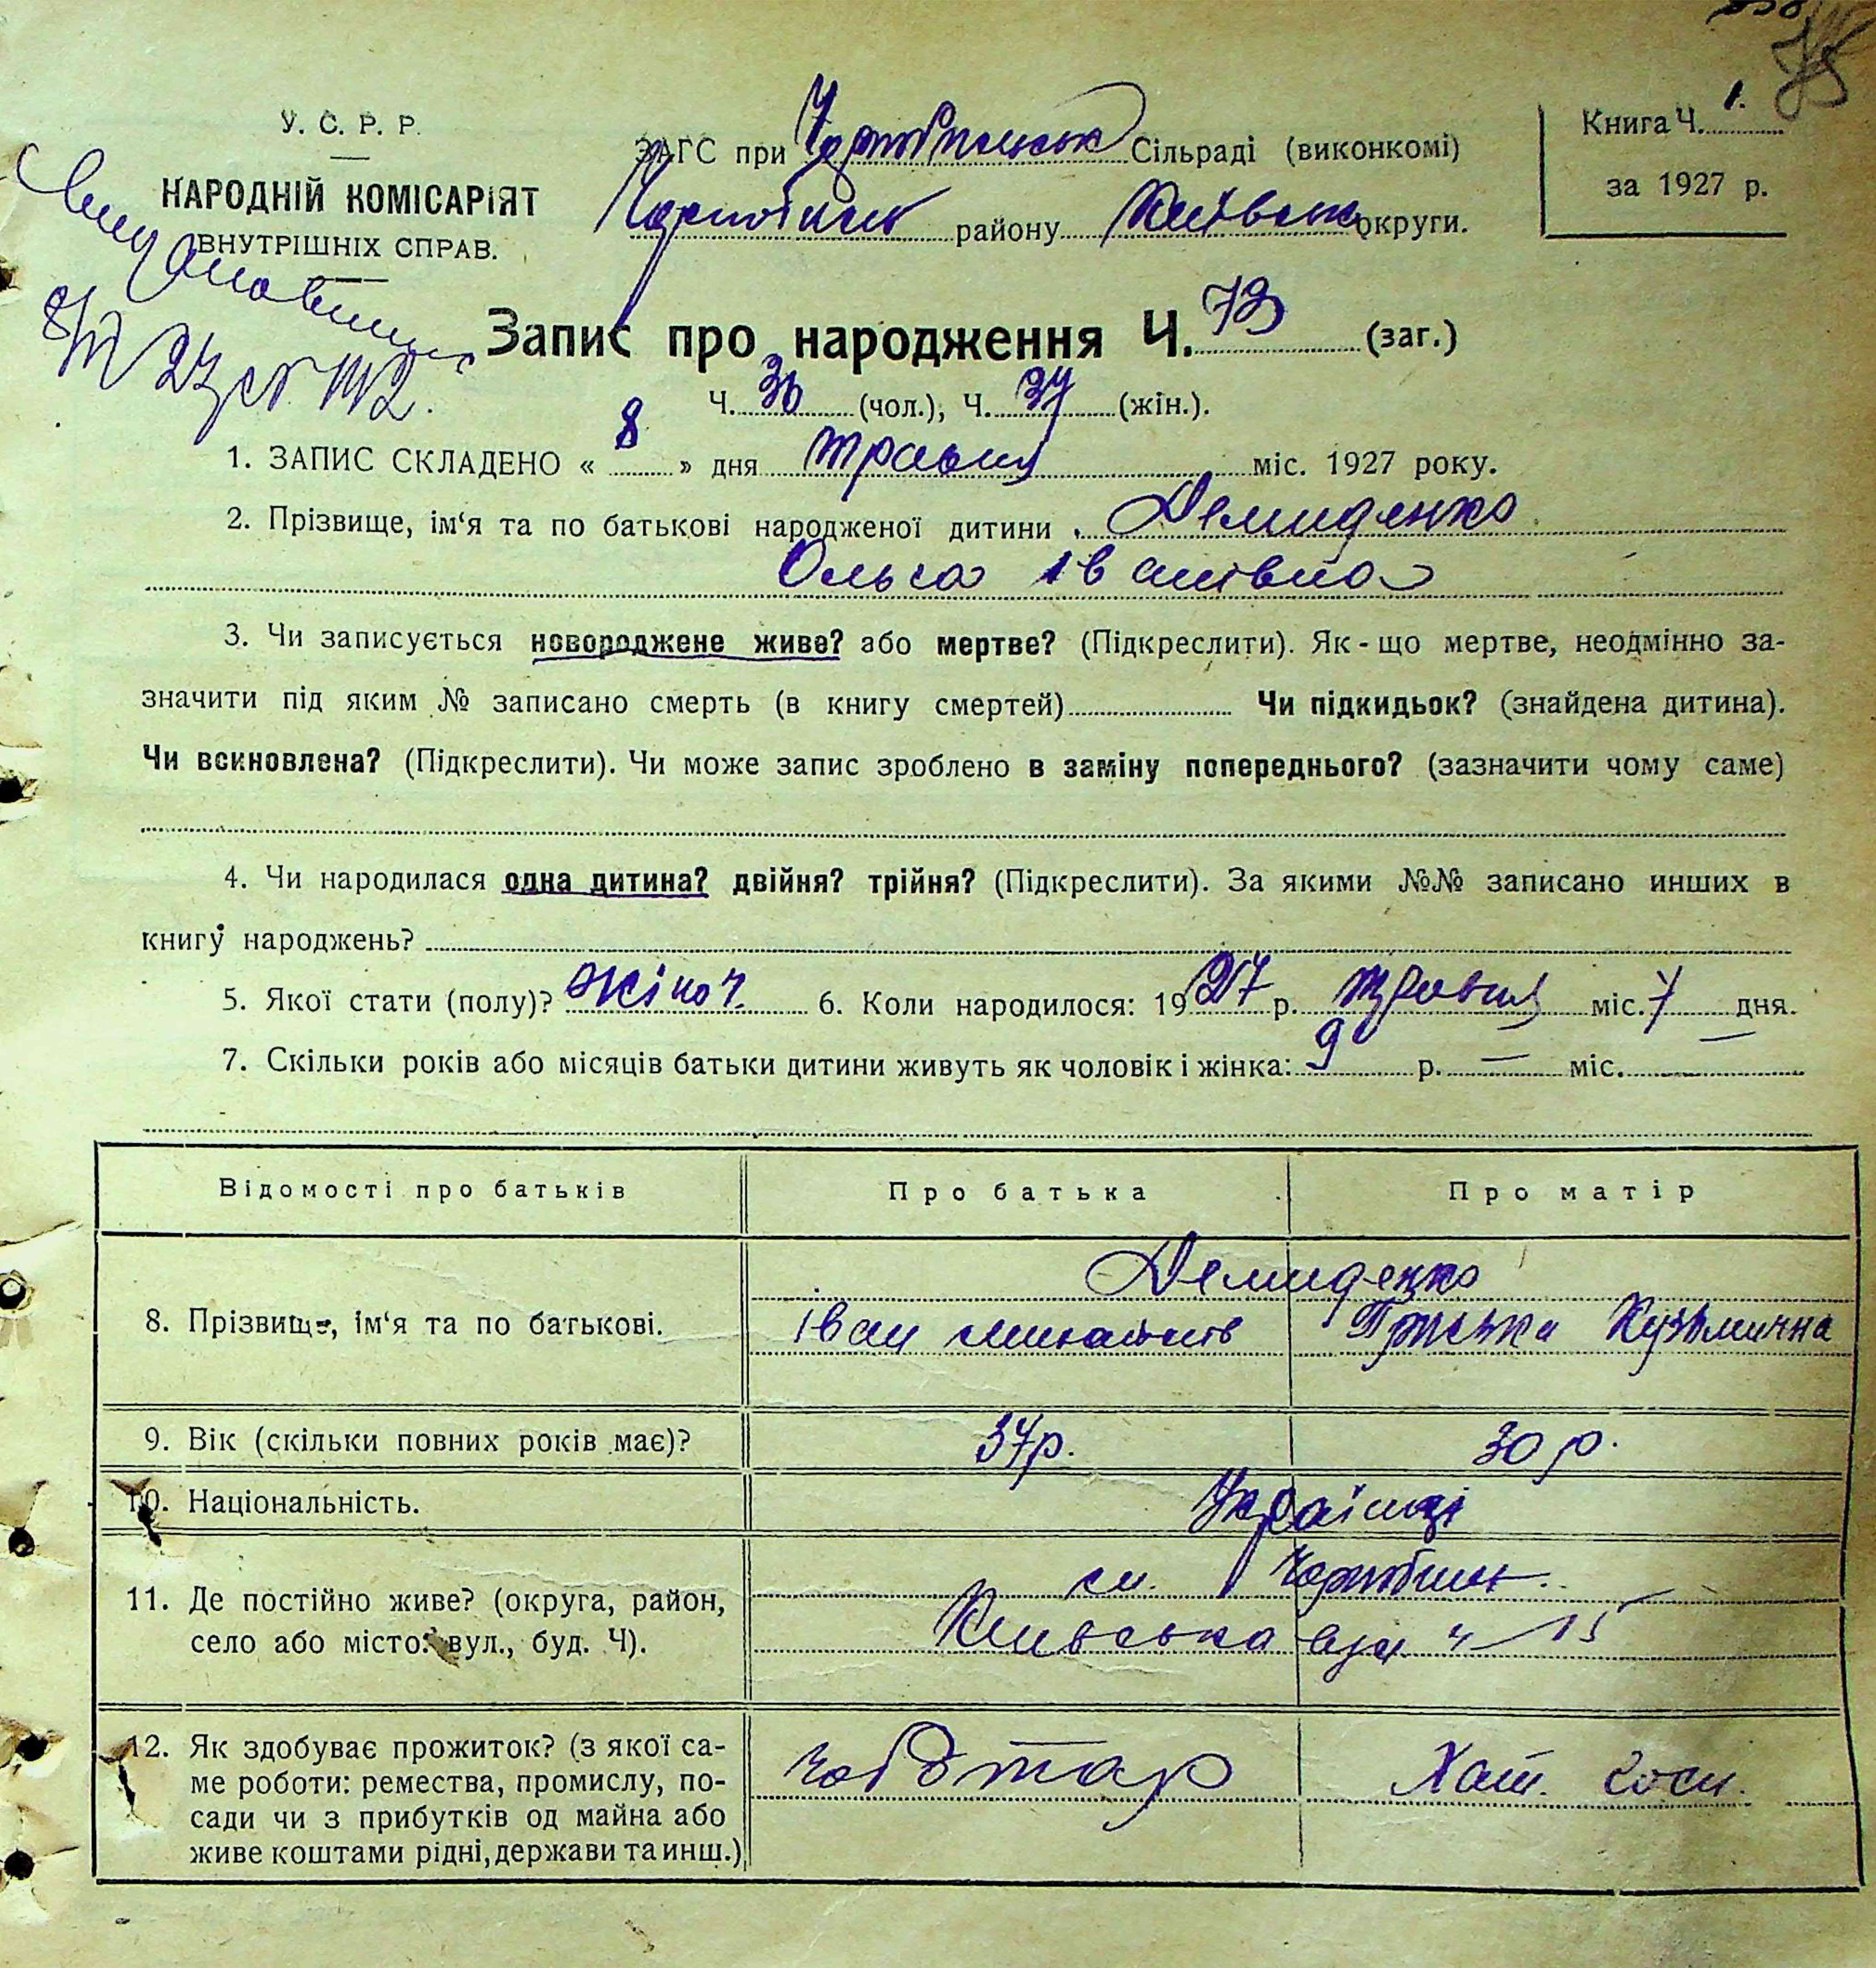 У. С. Р. Р.
НАРОДНІЙ КОМІСАРІЯТ
ВНУТРІШНІХ СПРАВ.
ЗАГС при Чорнобильськ Сільраді (виконкомі)
Чорнобильс району Київськ округи.
Книга Ч. 1.
за 1927 р.
Запис про народження Ч. 73 (заг.)
Ч. 36 (чол.), Ч. 37 (жін.).
1. ЗАПИС СКЛАДЕНО « 8 » дня травня міс. 1927 року.
2. Прізвище, ім‘я та по батькові народженої дитини Демиденко
Ольга Іванівна
3. Чи записується новороджене живе? або мертве? (Підкреслити). Як - що мертве, неодмінно за-
значити під яким № записано смерть (в книгу смертей) Чи підкидьок? (знайдена дитина).
Чи всиновлена? (Підкреслити). Чи може запис зроблено в заміну попереднього? (зазначити чому саме)
4. Чи народилася одна дитина? двійня? трійня? (Підкреслити). За якими №№ записано инших в
книгу народжень?
5. Якої стати (полу)? жіноч. 6. Коли народилося: 1927 р. травня міс. 7 дня.
7. Скільки років або місяців батьки дитини живуть як чоловік і жінка: 9 р. — міс.
Відомості про батьків Про батька Про матір
Демиденко
8. Прізвище, ім‘я та по батькові. Іван Кузьмична
9. Вік (скільки повних років має)? 34р. 30 р.
10. Національність. Українці
11. Де постійно живе? (округа, район,
село або місто: вул., буд. Ч).
м. Чорнобиль
Київська вул. ч 15
12. Як здобуває прожиток? (з якої са-
ме роботи: ремества, промислу, по-
сади чи з прибутків од майна або
живе коштами рідні, держави та инш.)
чоботар Хат. госп.